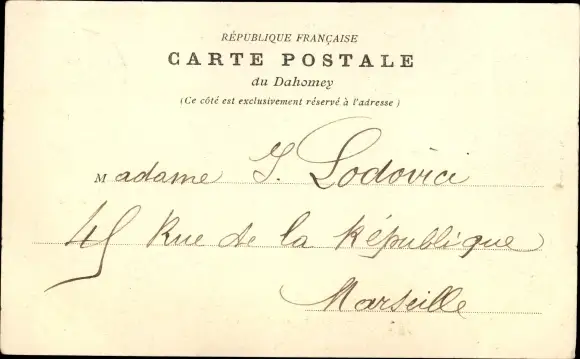 RÉPUBLIQUE FRANÇAISE
CARTE POSTALE
du Dahomey
(Ce côté est exclusivement réservé à l'adresse)
Madame J. Lodovici
45 Rue de la République
Marseille